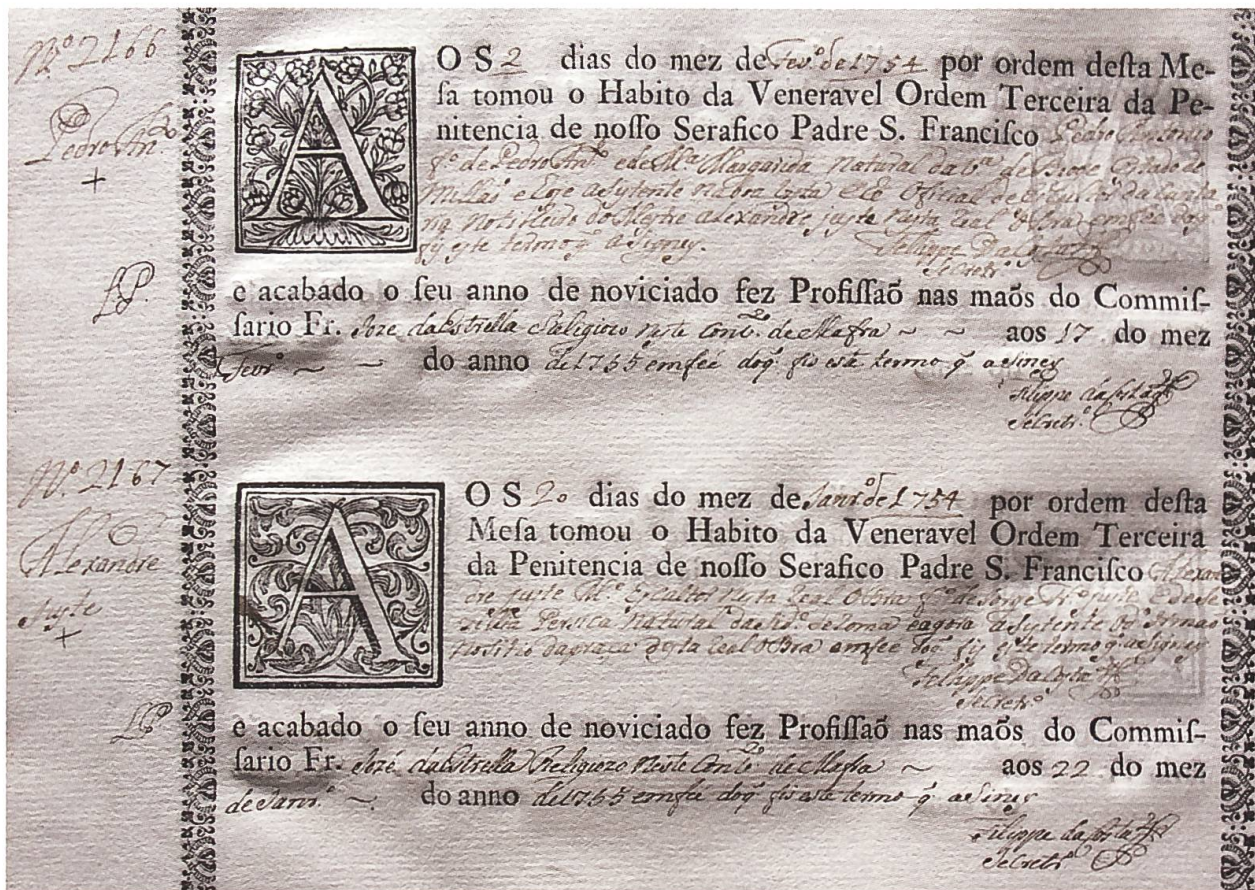 Nº 2166
Pedro Anº
+
AOS 2 dias do mez de Fevº de 1754 por ordem deſta Me-
ſa tomou o Habito da Veneravel Ordem Terceira da Pe-
nitencia de noſſo Serafico Padre S. Franciſco Pedro Antonio
fº de Pedro Antº e de Mª Margarida natural da de
e oje aSyſtente Official de
do Meſtre Alexandre juſte neſta Real Obra em feé doq
fiz eſte termo q aSigney.
Fellippe Da Coſta
Secretrº
LP.
e acabado o ſeu anno de noviciado fez Profiſſaõ nas maõs do Commiſ-
ſario Fr. Joze da Eſtrella Religiozo neſte Convº de Mafra ~ ~ aos 17 do mez
Fevrº ~ ~ do anno de 1755 em feé doq fis este termo q aSiney
Filippe da Coſta
Secretrº
Nº 2167
Alexandre
Juſte
+
AOS 20 dias do mez de Janrº de 1754 por ordem deſta
Meſa tomou o Habito da Veneravel Ordem Terceira
da Penitencia de noſſo Serafico Padre S. Franciſco Alexan
dre juſte neſta Real Obra fº de
natural da de Roma e agora aSyſtente
no ſitio da praça deſta Real Obra em feé doq fiz eſte termo q aSigney
Fellippe Da Coſta
Secretrº
LP
e acabado o ſeu anno de noviciado fez Profiſſaõ nas maõs do Commiſ-
ſario Fr. Jozé da Eſtrella Religiozo neſte Convº de Mafra ~ aos 22 do mez
de Janrº ~ do anno de 1755 em feé doq fis este termo q aSiney
Filippe da Coſta
Secretrº